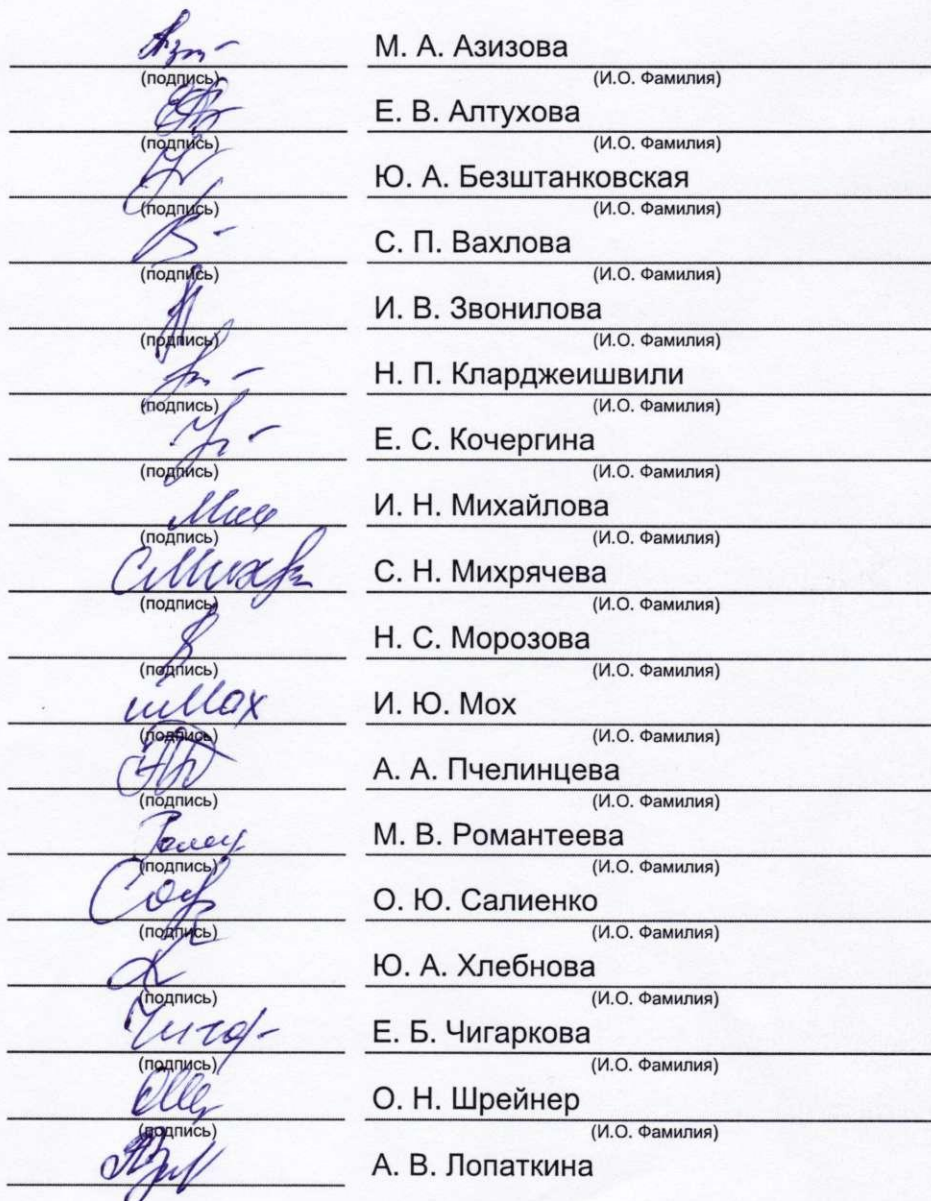 М. А. Азизова
(подпись) (И.О. Фамилия)
Е. В. Алтухова
(подпись) (И.О. Фамилия)
Ю. А. Безштанковская
(подпись) (И.О. Фамилия)
С. П. Вахлова
(подпись) (И.О. Фамилия)
И. В. Звонилова
(подпись) (И.О. Фамилия)
Н. П. Кларджеишвили
(подпись) (И.О. Фамилия)
Е. С. Кочергина
(подпись) (И.О. Фамилия)
И. Н. Михайлова
(подпись) (И.О. Фамилия)
С. Н. Михрячева
(подпись) (И.О. Фамилия)
Н. С. Морозова
(подпись) (И.О. Фамилия)
иМох И. Ю. Мох
(подпись) (И.О. Фамилия)
А. А. Пчелинцева
(подпись) (И.О. Фамилия)
М. В. Романтеева
(подпись) (И.О. Фамилия)
О. Ю. Салиенко
(подпись) (И.О. Фамилия)
Ю. А. Хлебнова
(подпись) (И.О. Фамилия)
Е. Б. Чигаркова
(подпись) (И.О. Фамилия)
О. Н. Шрейнер
(подпись) (И.О. Фамилия)
А. В. Лопаткина